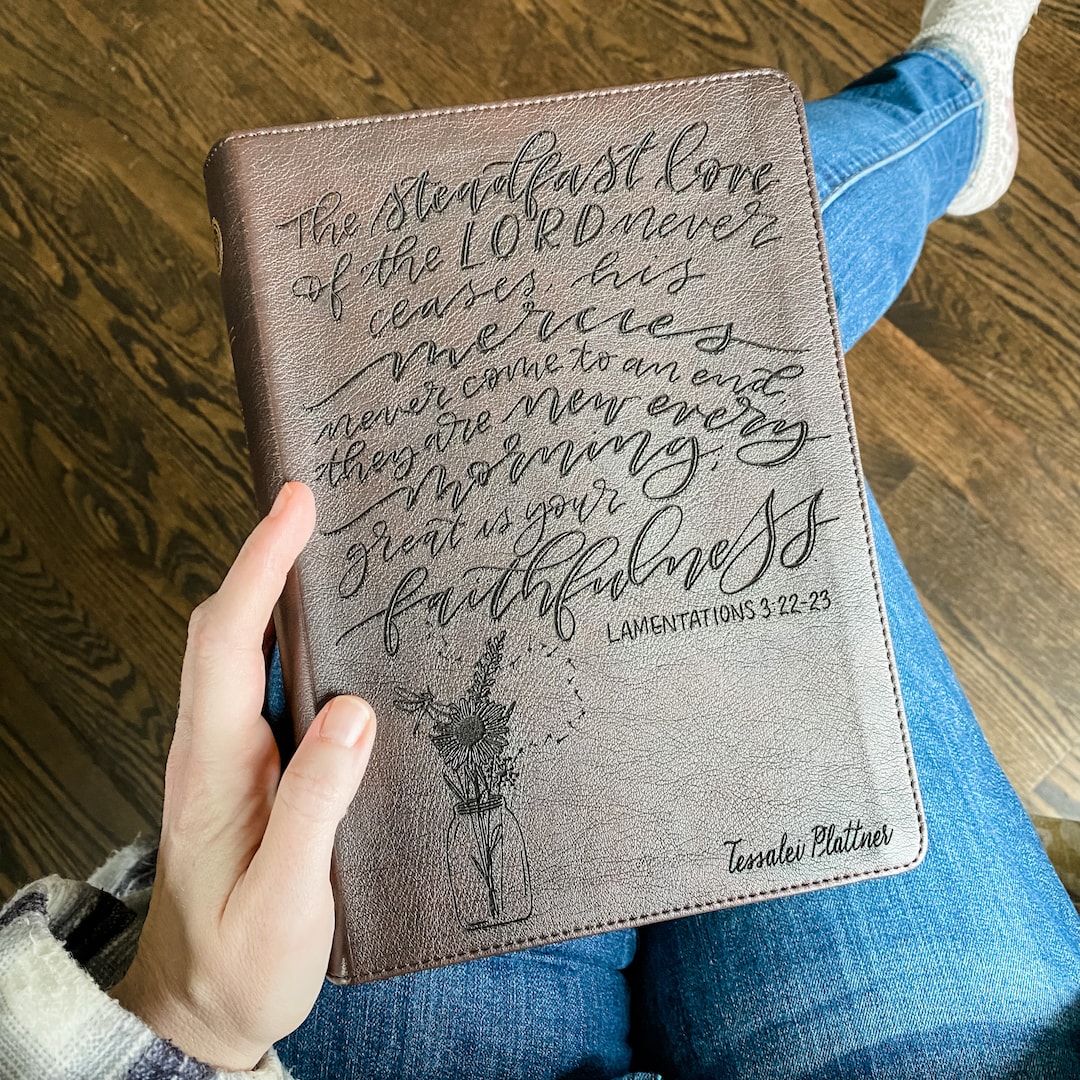 The steadfast love
of the LORD never
ceases, his
mercies
never come to an end;
they are new every
morning;
great is your
faithfulness.
LAMENTATIONS 3:22-23
Tessalei Plattner